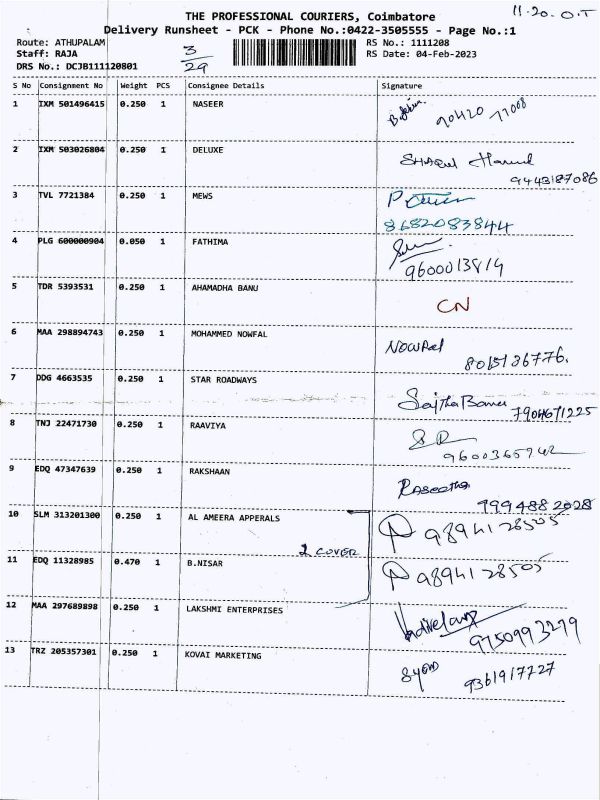 11-20. O.T
THE PROFESSIONAL COURIERS, Coimbatore
Delivery Runsheet - PCK - Phone No.:0422-3505555 - Page No.:1
Route: ATHUPALAM
Staff: RAJA
DRS No.: DCJB111120801
3/29
RS No.: 1111208
RS Date: 04-Feb-2023
S No Consignment No Weight PCS Consignee Details Signature
1 IXM 501496415 0.250 1 NASEER 90420 77008
2 IXM 503026804 0.250 1 DELUXE
9443187086
3 TVL 7721384 0.250 1 MEWS
8682083844
4 PLG 600000904 0.050 1 FATHIMA
9600013814
5 TDR 5393531 0.250 1 AHAMADHA BANU
CN
6 MAA 298894743 0.250 1 MOHAMMED NOWFAL
8015136776.
7 DDG 4663535 0.250 1 STAR ROADWAYS
Sajitha Banu 7904671225
8 TNJ 22471730 0.250 1 RAAVIYA
9600365942
9 EDQ 47347639 0.250 1 RAKSHAAN
Raseetha
7994882028
10 SLM 313201300 0.250 1 AL AMEERA APPERALS 9894128505
2 COVER
11 EDQ 11328985 0.470 1 B.NISAR 9894128505
12 MAA 297689898 0.250 1 LAKSHMI ENTERPRISES
9750993279
13 TRZ 205357301 0.250 1 KOVAI MARKETING
Syed 9361917727